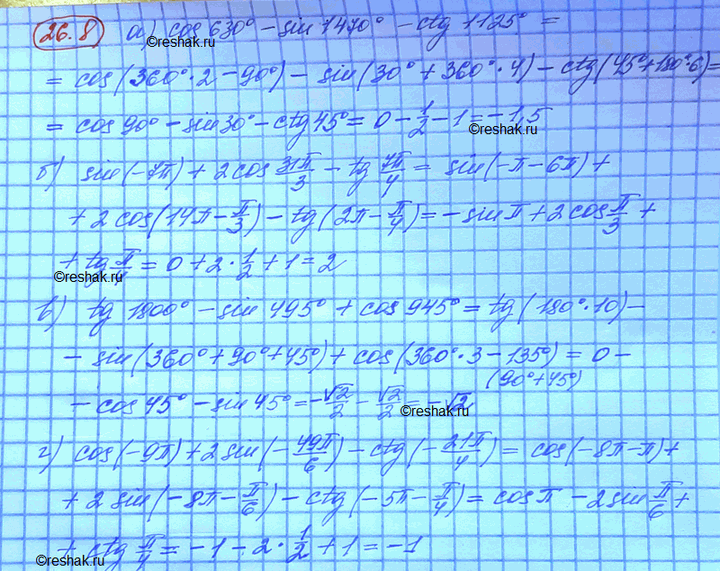 26.8 а) cos 630° − sin 1470° − ctg 1125° =
©reshak.ru
= cos(360°·2 − 90°) − sin(30° + 360°·4) − ctg(45° + 180°·6) =
= cos 90° − sin 30° − ctg 45° = 0 − 1/2 − 1 = −1,5
©reshak.ru
б) sin(−7π) + 2cos 31π/3 − tg 7π/4 = sin(−π − 6π) +
+ 2cos(14π − π/3) − tg(2π − π/4) = −sin π + 2cos π/3 +
+ tg π/4 = 0 + 2·1/2 + 1 = 2
©reshak.ru
в) tg 1800° − sin 495° + cos 945° = tg(180°·10) −
− sin(360° + 90° + 45°) + cos(360°·3 − 135°) = 0 −
(90° + 45°)
− cos 45° − sin 45° = −√2/2 − √2/2 = −√2
©reshak.ru
г) cos(−9π) + 2sin(−49π/6) − ctg(−21π/4) = cos(−8π − π) +
+ 2sin(−8π − π/6) − ctg(−5π − π/4) = cos π − 2sin π/6 +
+ ctg π/4 = −1 − 2·1/2 + 1 = −1
©reshak.ru